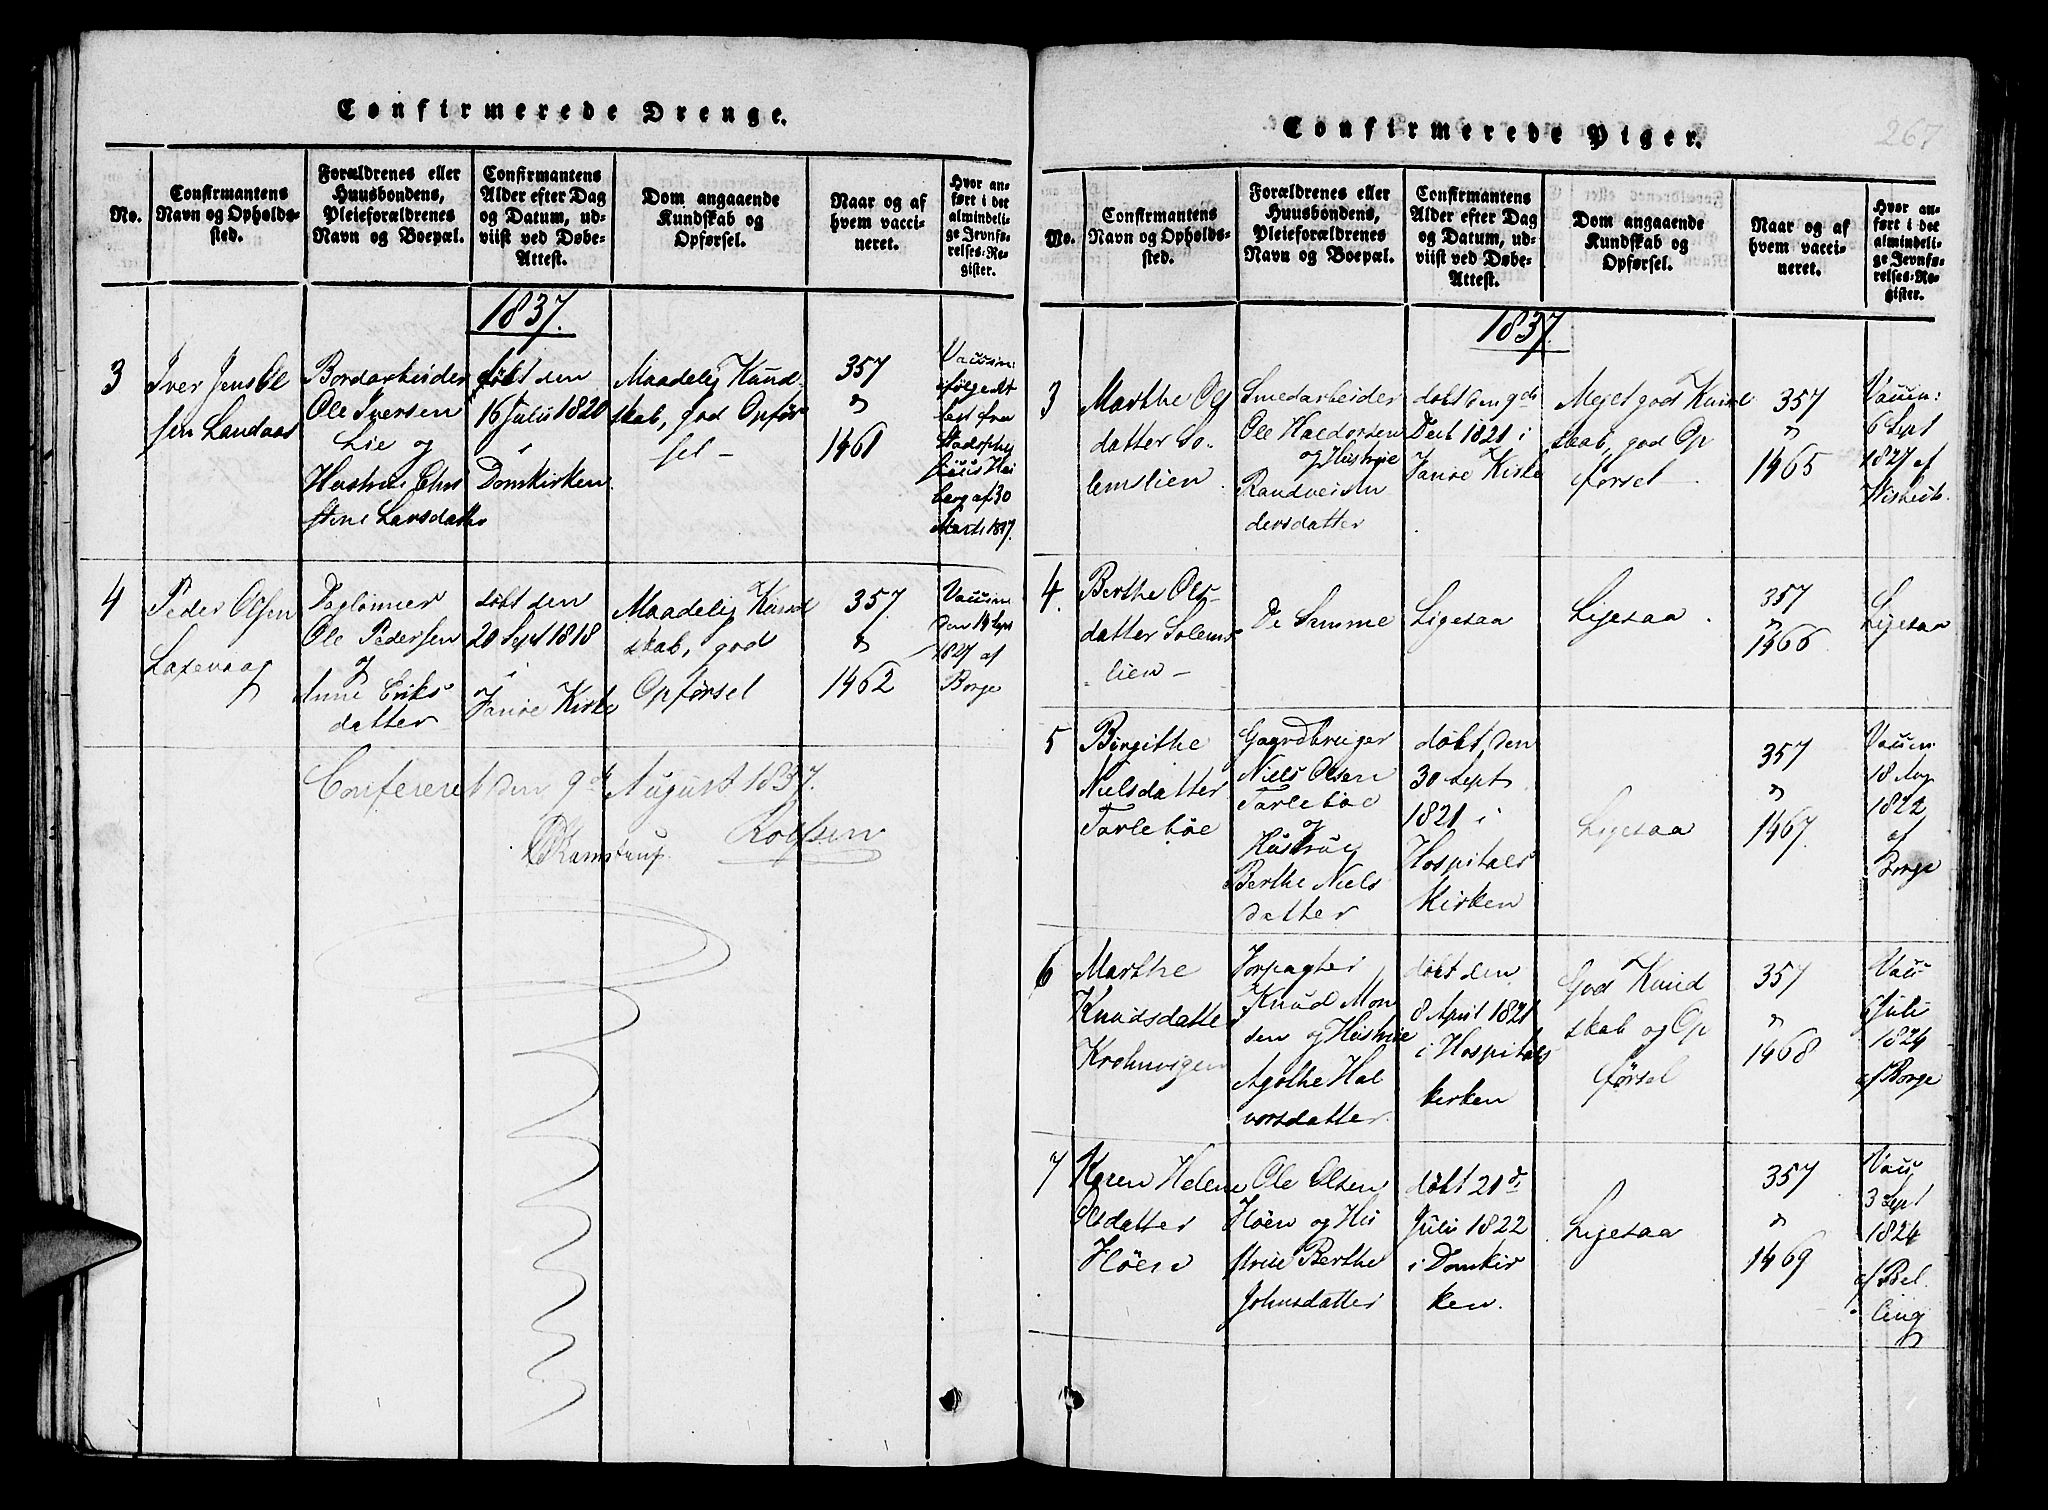 Confirmerede Drenge.
No.
Confirmantens
Navn og Opholds-
sted.
Forældrenes eller
Huusbondens,
Pleieforældrenes
Navn og Boepæl.
Confirmantens
Alder efter Dag
og Datum, ud-
viist ved Døbe-
Attest.
Dom angaaende
Kundskab og
Opførsel.
Naar og af
hvem vacci-
neret.
Hvor an-
ført i det
almindeli-
ge Jevnfø-
relses-Re-
gister.
1837.
3
Iver Jens Ol
sen Landaas
Bordarbeider
Ole Iversen
Lie og
Hustrue Chri
stine Larsdatter
døbt den
16 Julii 1820
i
Domkirken
Maadelig Kund-
skab, god Opför
sel -
357
"
1461
Vaccin
ifølge At
test fra
af 30
Marti 1837.
4
Peder Olsen
Laxevaag
Daglönner
Ole Pedersen
og
Anne Eriks
datter
döbt den
20 Sept 1818
i
Kirke
Maadelig Kund
skab, god
Opförsel
357
"
1462
Vaccin
den 14 Sept
1827 af
Borge
Confereret den 9de August 1837.
Kamstrup
Rolfsen
Confirmerede Piger.
267
No.
Confirmantens
Navn og Opholds-
sted.
Forældrenes eller
Huusbondens,
Pleieforældrenes
Navn og Boepæl.
Confirmantens
Alder efter Dag
og Datum, ud-
viist ved Døbe-
Attest.
Dom angaaende
Kundskab og
Opførsel.
Naar og af
hvem vacci-
neret.
Hvor an-
ført i det
almindeli-
ge Jevnfø-
relses-Re-
gister.
1837.
3
Marthe Ols
datter So-
lemslien
Smedarbeider
Ole Haldorsen
og Hustrue
Randvei An
dersdatter
döbt den 9de
Decb 1821 i
Kirke
Meget god Kund
skab, god Op
försel -
357
"
1465
Vaccin:
6 Sept
1827 af
4.
Berthe Ols-
datter Solems
lien -
De Samme
Ligesaa
Ligesaa
357
"
1466
Ligesaa
5
Birgithe
Nielsdatter
Tarleböe
Gaardbruger
Niels Olsen
Tarleböe
og
Hustrue
Berthe Niels
datter
döbt, den
30 Sept
1821 i
Hospitals
Kirken
Ligesaa
357
"
1467
Vaccin
18 Aug
1822
af
Borge
6
Marthe
Knudsdatter
Krohnvigen
Forpagter
Knud Mon
sen og Hustrue
Agathe Hal
vorsdatter
döbt den
8 April 1821
i Hospitals
kirken
God Kund
skab og Op
försel
357
"
1468
Vacc
6 Juli
1824
af Borge
7
Karen Helene
Olsdatter
Flöen
Ole Olsen
Flöen og Hu
strue Berthe
Johnsdatter
döbt 21de
Juli 1822
i Domkir
ken.
Ligesaa
357
"
1469
Vacc
3 Sept
1824
af Bel
ling